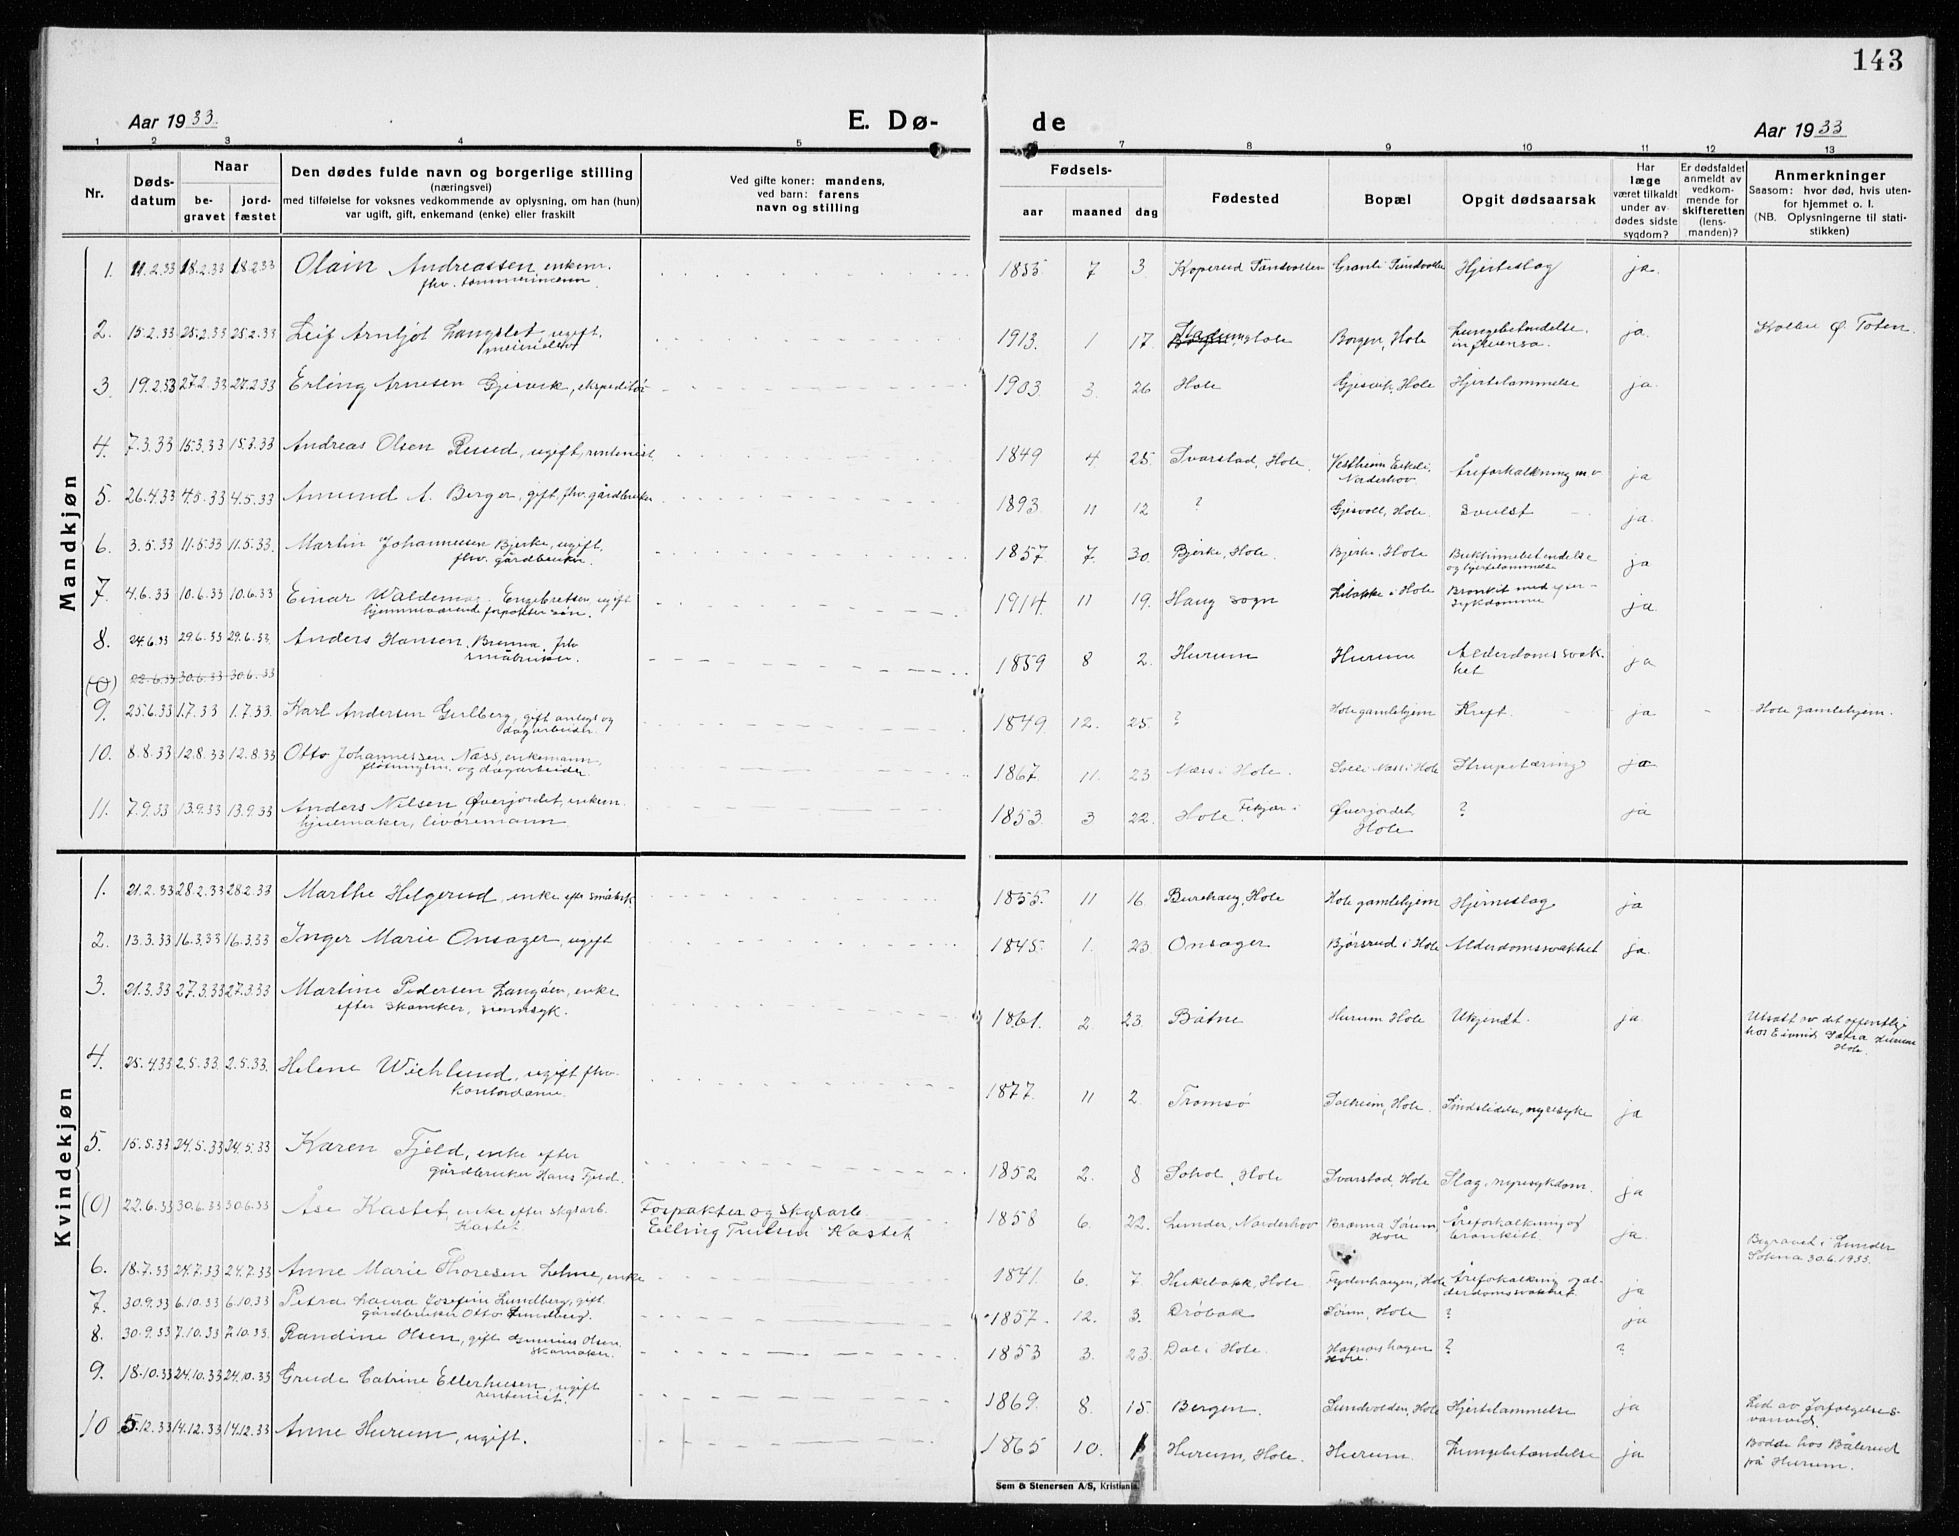 143
Aar 1933.
E. Dø-
de
Aar 1933
1 2 3 4 5 6 7 8 9 10 11 12 13
Nr.
Døds-
datum
Naar
be-
gravet
jord-
fæstet
Den dødes fulde navn og borgerlige stilling
(næringsvei)
med tilføielse for voksnes vedkommende av oplysning, om han (hun)
var ugift, gift, enkemand (enke) eller fraskilt
Ved gifte koner: mandens,
ved barn: farens
navn og stilling
Fødsels-
aar maaned dag
Fødested
Bopæl
Opgit dødsaarsak
Har
læge
været tilkaldt
under av-
dødes sidste
sygdom?
Er dødsfaldet
anmeldt av
vedkom-
mende for
skifteretten
(lens-
manden)?
Anmerkninger
Saasom: hvor død, hvis uten-
for hjemmet o. l.
(NB. Oplysningerne til stati-
stikken)
Mandkjøn
1. 11.2.33 18.2.33 18.2.33 Olain Andreassen, enkem. 1855 7 3 Koperud Sundvolden Granli Sundvollen Hjerteslag ja.
fhv. tømmermann
2. 15.2.33 25.2.33 25.2.33 Leif Arnljot Langslet, ugift, 1913. 1 17. Hole Borgen, Hole Lungebetendelse, ja. Kolbu Ø. Toten.
meierielev influensa.
3. 19.2.33 27.2.33 27.2.33 Erling Arnesen Gjesvik, ekspeditør 1903 3. 26 Hole Gjesvik, Hole Hjertelammelse ja.
4. 7.3.33 15.3.33 15.3.33 Andreas Olsen Ruud, ugift, rentenist. 1849 4 25. Svarstad, Hole. Vestheim Eikeli, Åreforkalkning m.v ja
Norderhov.
5. 26.4.33 4.5.33 4.5.33 Amund A. Berger, gift, fhv. gårdbruker 1893. 11 12 ? Gjesvoll, Hole. Svulst ja.
6. 3.5.33 11.5.33 11.5.33. Martin Johannesen Bjerke, ugift, 1857. 7. 30. Bjerke, Hole. Bjerke, Hole Bukhinnebetendelse ja
fhv. gårdbruker. og hjertelammelse
7. 4.6.33 10.6.33 10.6.33 Einar Waldemar Engebretsen, ugift 1914. 11 19. Haug sogn Libakke i Hole Bronkit med efter- ja.
hjemmeværende forpakter søn. sykdomme
8. 24.6.33 29.6.33 29.6.33 Anders Hansen Brenna, fhv 1859 8 2. Hurum Hurum Alderdomssvak- ja
småbruker. het
(0) 22.6.33 30.6.33 30.6.33
9. 25.6.33 1.7.33 1.7.33. Karl Andersen Gulberg, gift 1849 12. 25. ? Hole gamlehjem Kreft. ja Hole gamlehjem.
dagarbeider.
10. 8.8.33 12.8.33 12.8.33 Otto Johannessen Næss, enkemann, 1867. 11. 23 Næss i Hole. Solli Næss i Hole Strupetæring ja
og dagarbeider.
11. 7.9.33 13.9.33 13.9.33 Anders Nilsen Øverjordet, enkem. 1853. 3 22. Hole. Fekjær i Øverjordet, ? ja
hjulmaker, livøremann. Hole
Kvindekjøn
1. 21.2.33 28.2.33 28.2.33 Marthe Helgerud, enke efter småbrk 1855. 11 16. Burehaug, Hole Hole gamlehjem Hjerneslag ja
2. 13.3.33 16.3.33 16.3.33 Inger Marie Onsager, ugift 1845. 1. 23. Onsager Bjørsrud i Hole Alderdomssvakhet ja.
3. 21.3.33 27.3.33 27.3.33 Martine Pedersen Langøen, enke 1861. 2. 23. Båtne Hurum Hole Ukjendt. ja. Utsatt av det offentlige
efter skomker, sinnsyk. hos Eivind Sætra Hurum
Hole.
4. 25.4.33 2.5.33 2.5.33. Helene Wichlund, ugift fhv. 1877. 11 2. Tromsø Solheim, Hole. Sindslidelse, nyresyke ja
Kontordame.
5. 15.5.33 24.5.33 24.5.33 Karen Fjeld, enke efter 1852 2. 8 Sohol, Hole Svarstad, Hole Slag, nyresykdom. ja
gårdbruker Hans Fjeld.
(0) 22.6.33 30.6.33 30.6.33 Åse Kastet, enke efter skysarb. Forpakter og skysarb. 1858 6. 22. Lunder, Norderhov Brænna Sørum, Åreforkalkning og ja.
Kastet Elling Trulsen Kastet Hole bronkitt.
Begravet i Lunder
Sokna 30.6.1933.
6. 18.7.33 24.7.33 24.7.33 Anne Marie Thoresen Lehne, enke 1841. 6. 7. Hukebakk, Hole Fydenhaugen, Hole Åreforkalkning og al- ja
derdomssvakhet.
7. 30.9.33 6.10.33 6.10.33 Petra Laura Josefine Lundberg, gift 1857. 12. 3. Drøbak Sørum, Hole ? ja
gårdbruker Otto Lundberg.
8. 30.9.33 7.10.33 7.10.33. Randine Olsen, gift Gunerius Olsen 1853 3. 23. Dal i Hole. Hole. ? ?
skomaker.
9. 18.10.33 24.10.33 24.10.33 Grude Catrine Ellerhusen, ugift 1869. 8. 15. Bergen. Sundvolden, Hole Hjertelammelse ja Led av forfølgelses-
rentenist. vanvid.
10 5.12.33 14.12.33 14.12.33 Anne Hurum, ugift. 1865 10. 1 Hurum, Hole. Hurum. Lungebetændelse ja Bodde hos Bålerud
på Hurum.
Sem & Stenersen A/S, Kristiania.